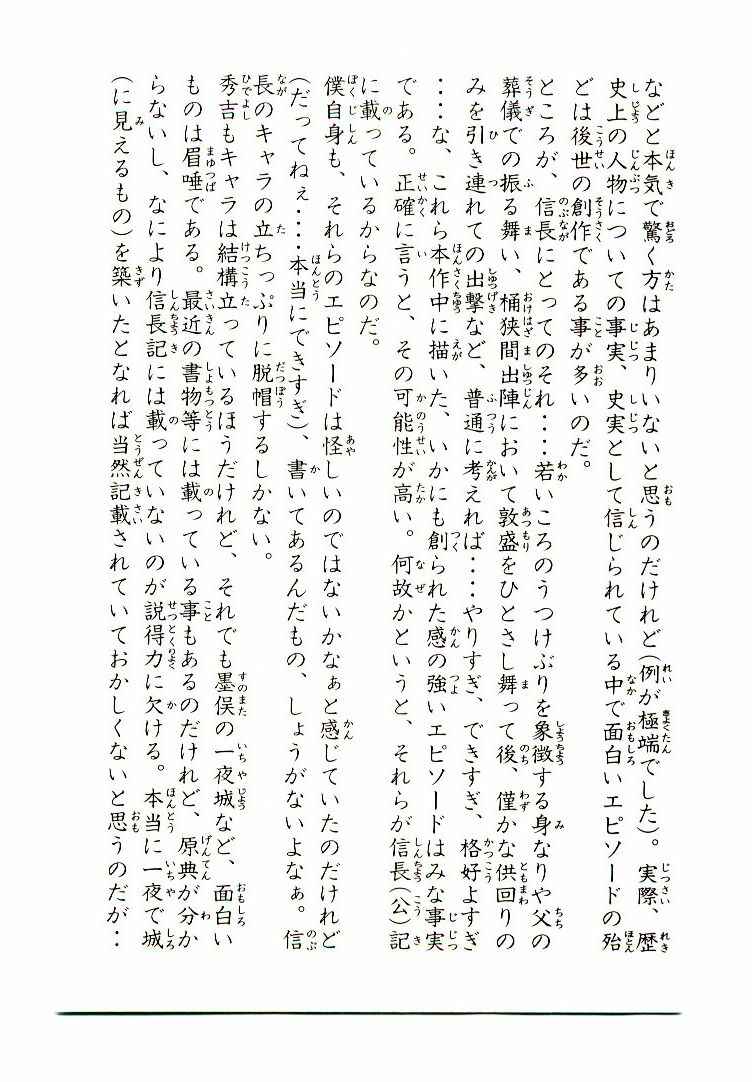 などと本気で驚く方はあまりいないと思うのだけれど(例が極端でした)。実際、歴
史上の人物についての事実、史実として信じられている中で面白いエピソードの殆
どは後世の創作である事が多いのだ。
ところが、信長にとってのそれ・・・若いころのうつけぶりを象徴する身なりや父の
葬儀での振る舞い、桶狭間出陣において敦盛をひとさし舞って後、僅かな供回りの
みを引き連れての出撃など、普通に考えれば・・・・やりすぎ、できすぎ、格好よすぎ
・・・・な、これら本作中に描いた、いかにも創られた感の強いエピソードはみな事実
である。正確に言うと、その可能性が高い。何故かというと、それらが信長(公)記
に載っているからなのだ。
僕自身も、それらのエピソードは怪しいのではないかなぁと感じていたのだけれど
(だってねぇ・・・・本当にできすぎ)、書いてあるんだもの、しょうがないよなぁ。信
長のキャラの立ちっぷりに脱帽するしかない。
秀吉もキャラは結構立っているほうだけれど、それでも墨俣の一夜城など、面白い
ものは眉唾である。最近の書物等には載っている事もあるのだけれど、原典が分か
らないし、なにより信長記には載っていないのが説得力に欠ける。本当に一夜で城
(に見えるもの)を築いたとなれば当然記載されていておかしくないと思うのだが・・